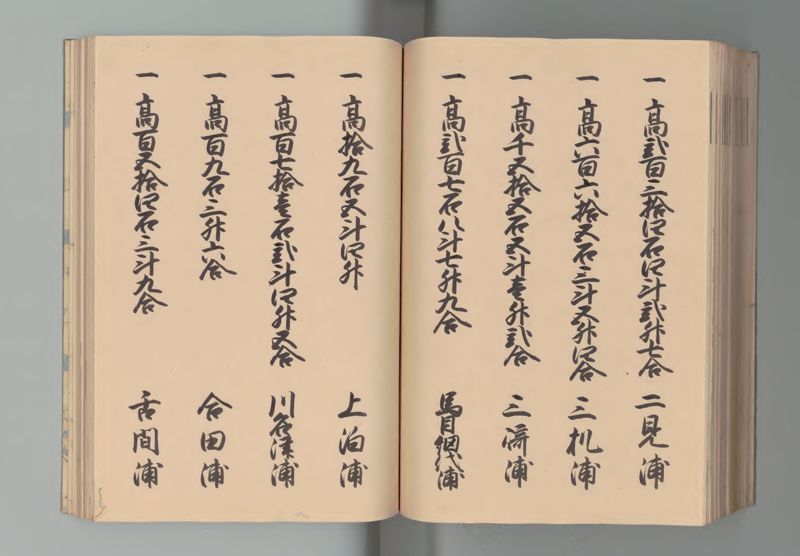 一 高弐百三拾四石四斗弐升七合 二見浦
一 高六百六拾五石三斗五升四合 三机浦
一 高千五拾五石五斗壱升弐合 三崎浦
一 高弐百七石八斗七升九合 馬目網代浦
一 高拾九石五斗四升 上泊浦
一 高百七拾壱石弐斗四升五合 川名津浦
一 高百九石三升六合 合田浦
一 高百五拾四石三斗九合 舌間浦